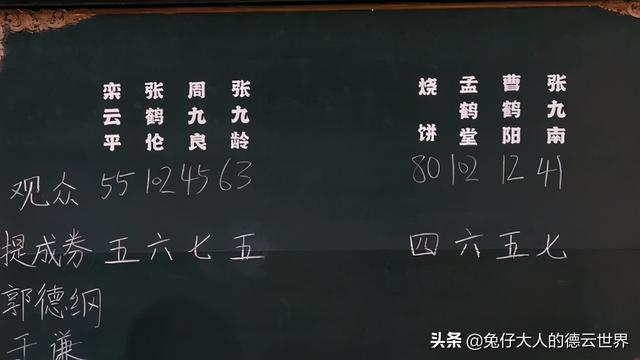 栾云平 张鹤伦 周九良 张九龄 烧饼 孟鹤堂 曹鹤阳 张九南
观众 55 102 45 63 80 102 12 41
提成券 五 六 七 五 四 六 五 七
郭德纲
于谦
头条 @兔仔大人的德云世界